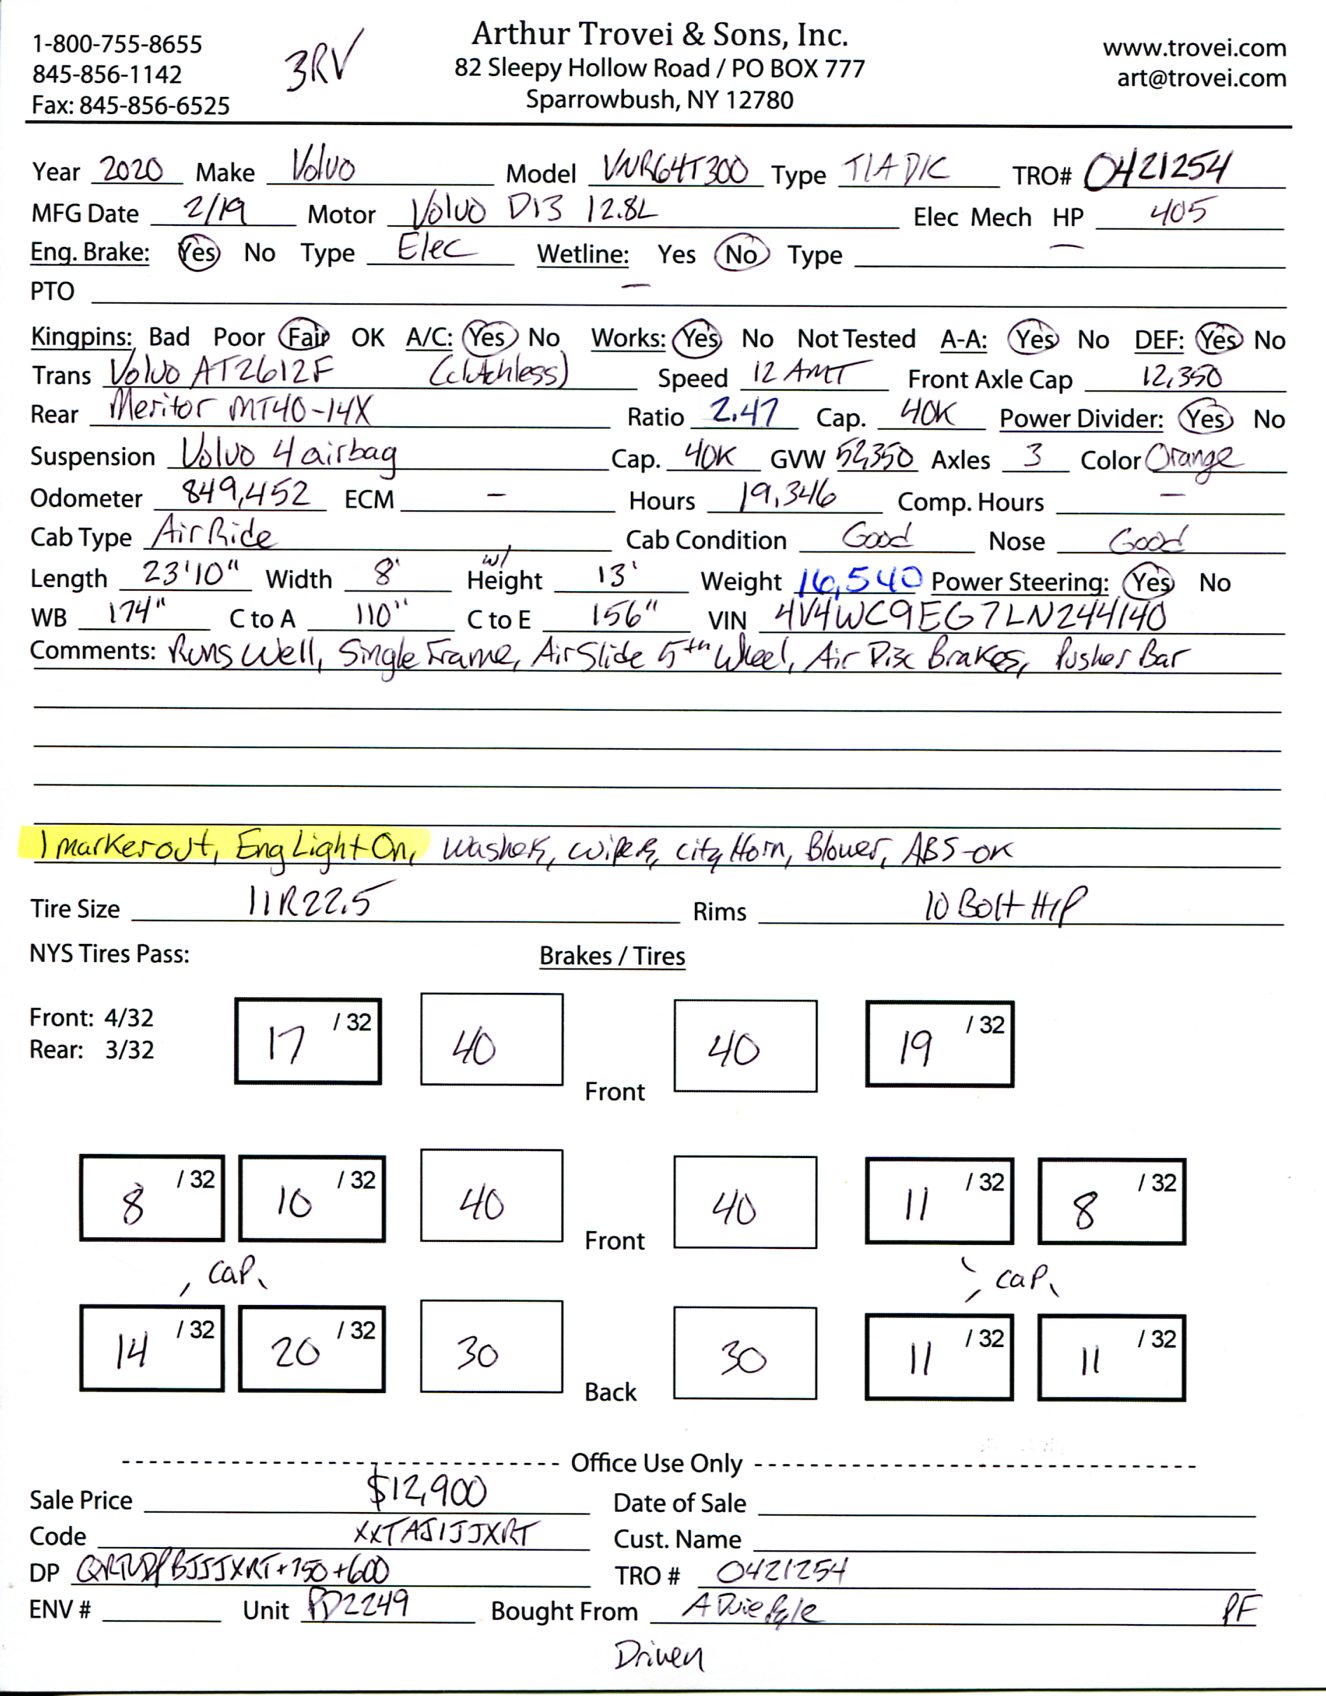 1-800-755-8655
845-856-1142
Fax: 845-856-6525
3RV
Arthur Trovei & Sons, Inc.
82 Sleepy Hollow Road / PO BOX 777
Sparrowbush, NY 12780
www.trovei.com
art@trovei.com
Year 2020 Make Volvo Model VNR64T300 Type T/A D/C TRO# 0421254
MFG Date 2/19 Motor Volvo D13 12.8L Elec Mech HP 405
Eng. Brake: Yes No Type Elec Wetline: Yes No Type —
PTO —
Kingpins: Bad Poor Fair OK A/C: Yes No Works: Yes No Not Tested A-A: Yes No DEF: Yes No
Trans Volvo AT2612F (clutchless) Speed 12 AMT Front Axle Cap 12,350
Rear Meritor MT40-14X Ratio 2.47 Cap. 40K Power Divider: Yes No
Suspension Volvo 4 airbag Cap. 40K GVW 52,350 Axles 3 Color Orange
Odometer 849,452 ECM — Hours 19,346 Comp. Hours —
Cab Type Air Ride Cab Condition Good Nose Good
Length 23'10" Width 8' w/ Height 13' Weight 16,540 Power Steering: Yes No
WB 174" C to A 110" C to E 156" VIN 4V4WC9EG7LN244140
Comments: Runs Well, Single Frame, Air Slide 5th Wheel, Air Disc Brakes, Pusher Bar
1 marker out, Eng Light On, Washer, Wiper, City Horn, Blower, ABS-OK
Tire Size 11R22.5 Rims 10 Bolt H/P
NYS Tires Pass: Brakes / Tires
Front: 4/32
Rear: 3/32
17 /32 40 40 19 /32
Front
8 /32 10 /32 40 40 11 /32 8 /32
Front
cap cap
14 /32 20 /32 30 30 11 /32 11 /32
Back
Office Use Only
Sale Price $12,900 Date of Sale
Code XXTASIJJXRT Cust. Name
DP +750+600 TRO # 0421254
ENV # Unit PD2249 Bought From A Duie Pyle PF
Driven